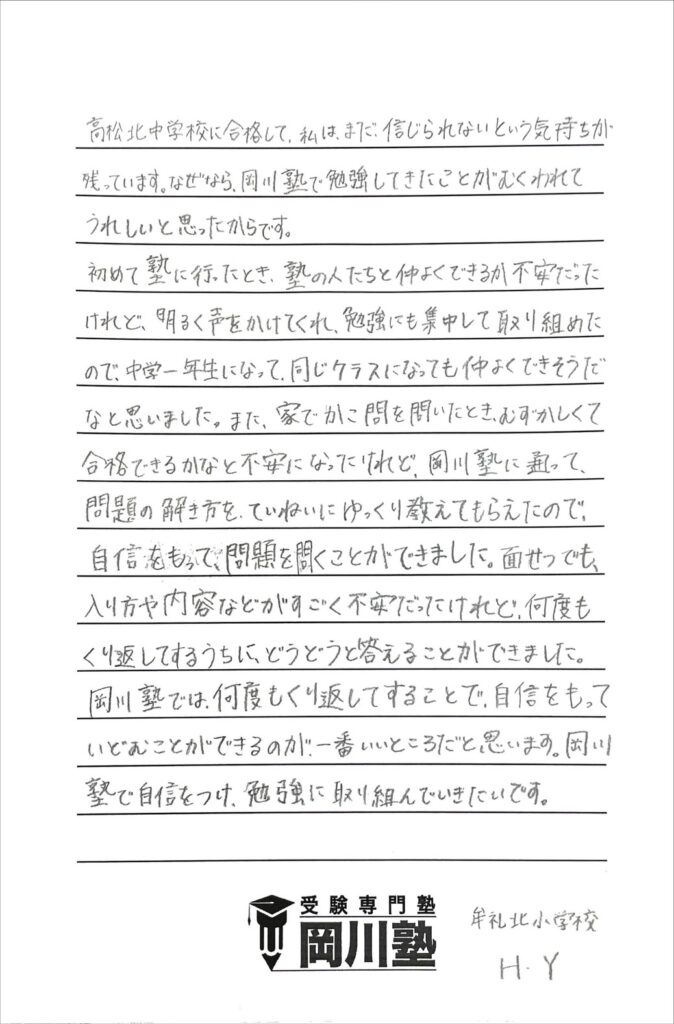 高松北中学校に合格して、私は、まだ、信じられないという気持ちが
残っています。なぜなら、岡川塾で勉強してきたことがむくわれて
うれしいと思ったからです。
初めて塾に行ったとき、塾の人たちと仲よくできるか不安だった
けれど、明るく声をかけてくれ、勉強にも集中して取り組めた
ので、中学一年生になって、同じクラスになっても仲よくできそうだ
なと思いました。また、家でかこ問を問いたとき、むずかしくて
合格できるかなと不安になったけれど、岡川塾に通って、
問題の解き方を、ていねいにゆっくり教えてもらえたので、
自信をもって、問題を問くことができました。面せつでも、
入り方や内容などがすごく不安だったけれど、何度も
くり返してするうちに、どうどうと答えることができました。
岡川塾では、何度もくり返してすることで、自信をもって
いどむことができるのが、一番いいところだと思います。岡川
塾で自信をつけ、勉強に取り組んでいきたいです。
受験専門塾
岡川塾
牟礼北小学校
H.Y